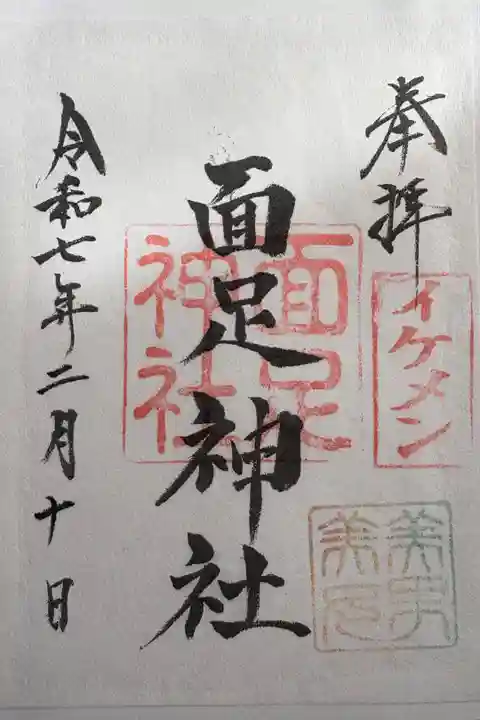 奉拝
イケメン
美男
美女
面足神社
面足
神社
令和七年二月十日